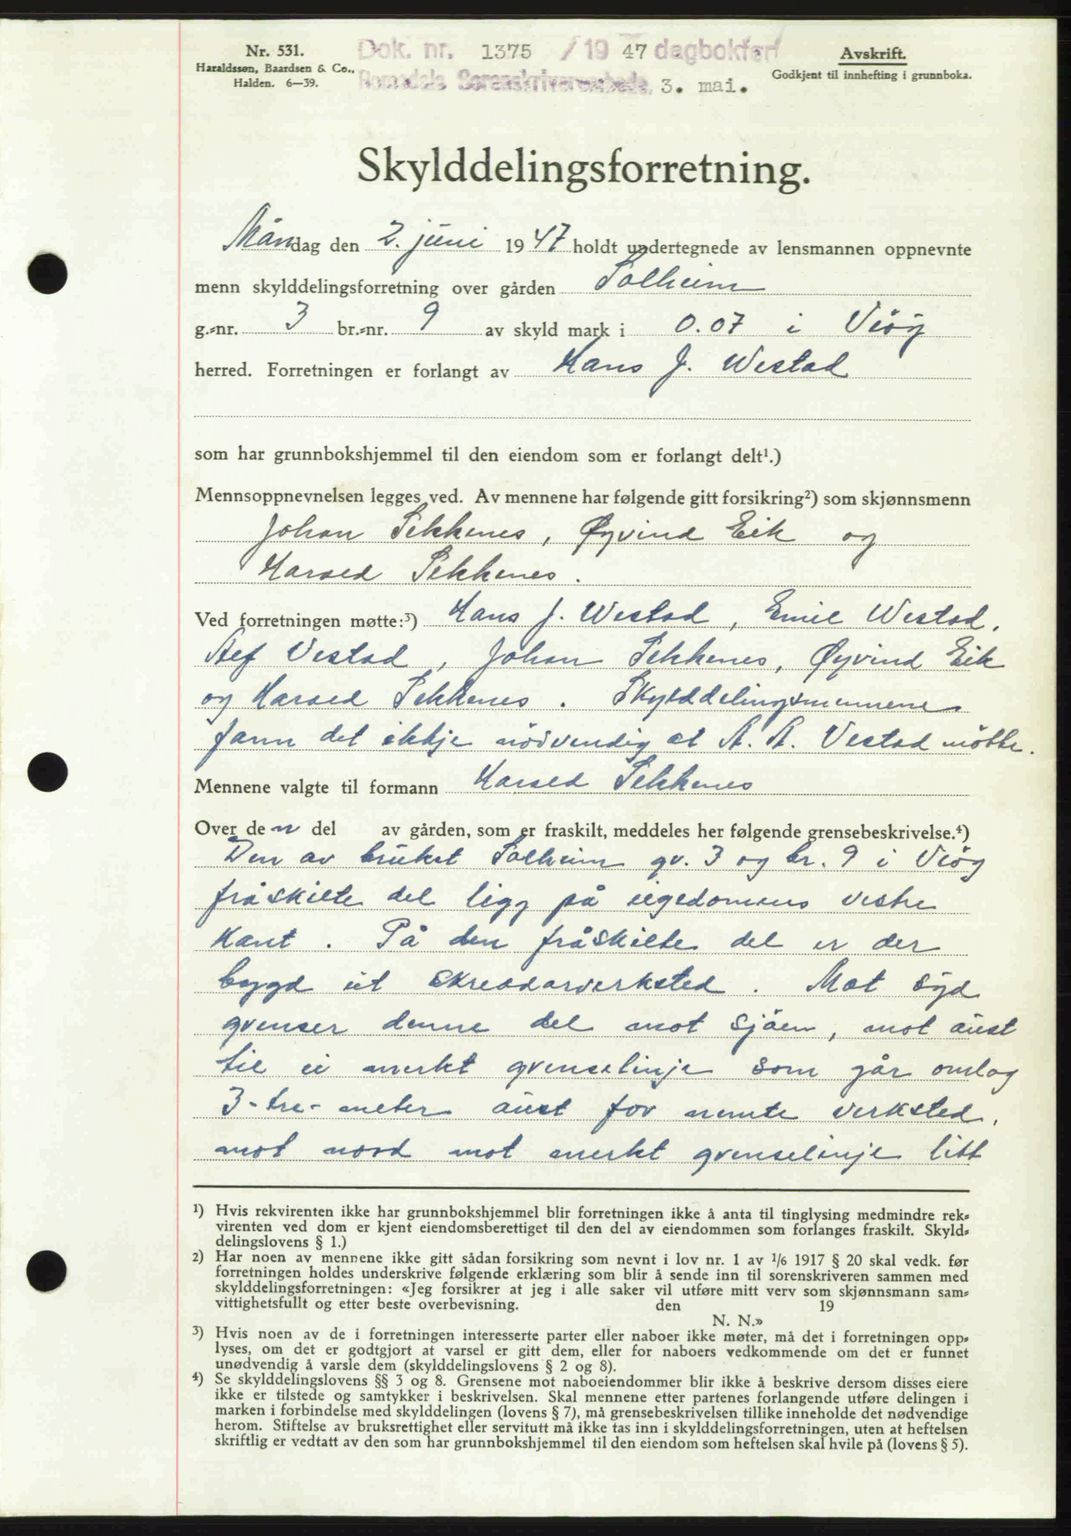 Nr. 531.
Haraldssen, Baardsen & Co.,
Halden. 6—39.
Dok. nr. 1375 / 19 47 dagbokført
Romsdals Sorenskriverembede, 3. mai.
Avskrift.
Godkjent til innhefting i grunnboka.
Skylddelingsforretning.
Måndag den 2. juni 1947 holdt undertegnede av lensmannen oppnevnte
menn skylddelingsforretning over gården Solheim
g.-nr. 3 br.-nr. 9 av skyld mark i 0.07 i Veøy
herred. Forretningen er forlangt av Hans J. Westad
som har grunnbokshjemmel til den eiendom som er forlangt delt¹.)
Mennsoppnevnelsen legges ved. Av mennene har følgende gitt forsikring²) som skjønnsmenn
Johan Sekkenes, Øyvind Eik og
Harald Sekkenes.
Ved forretningen møtte:³) Hans J. Westad, Emil Westad,
Alf Vestad, Johan Sekkenes, Øyvind Eik
og Harald Sekkenes. Skylddelingsmennene
fann det ikkje nödvendig at A. A. Vestad mötte.
Mennene valgte til formann Harald Sekkenes
Over den del av gården, som er fraskilt, meddeles her følgende grensebeskrivelse.⁴)
Den av bruket Solheim gr. 3 og br. 9 i Veöy
fråskilte del ligg på eigedomens vestre
kant. På den fråskilte del er der
bygd eit skreddarverksted. Mot syd
grenser denne del mot sjöen, mot aust
til ei merkt grenselinje som går omlag
3-tre- meter aust for nemte verksted,
mot nord mot merkt grenselinje litt
¹) Hvis rekvirenten ikke har grunnbokshjemmel blir forretningen ikke å anta til tinglysing medmindre rek-
virenten ved dom er kjent eiendomsberettiget til den del av eiendommen som forlanges fraskilt. Skyld-
delingslovens § 1.)
²) Har noen av mennene ikke gitt sådan forsikring som nevnt i lov nr. 1 av 1/6 1917 § 20 skal vedk. før
forretningen holdes underskrive følgende erklæring som blir å sende inn til sorenskriveren sammen med
skylddelingsforretningen: «Jeg forsikrer at jeg i alle saker vil utføre mitt verv som skjønnsmann sam-
vittighetsfullt og etter beste overbevisning. den 19
N. N.»
³) Hvis noen av de i forretningen interesserte parter eller naboer ikke møter, må det i forretningen opp-
lyses, om det er godtgjort at varsel er gitt dem, eller for naboers vedkommende om det er funnet
unødvendig å varsle dem (skylddelingslovens § 2 og 8).
⁴) Se skylddelingslovens §§ 3 og 8. Grensene mot naboeiendommer blir ikke å beskrive dersom disses eiere
ikke er tilstede og samtykker i beskrivelsen. Skal mennene etter partenes forlangende utføre delingen i
marken i forbindelse med skylddelingen (lovens § 7), må grensebeskrivelsen tillike inneholde det nødvendige
herom. Stiftelse av bruksrettighet eller servitutt må ikke tas inn i skylddelingsforretningen, uten at heftelsen
skriftlig er vedtatt av den som har grunnbokshjemmel til den eiendom som heftelsen skal hvile på (lovens § 5).